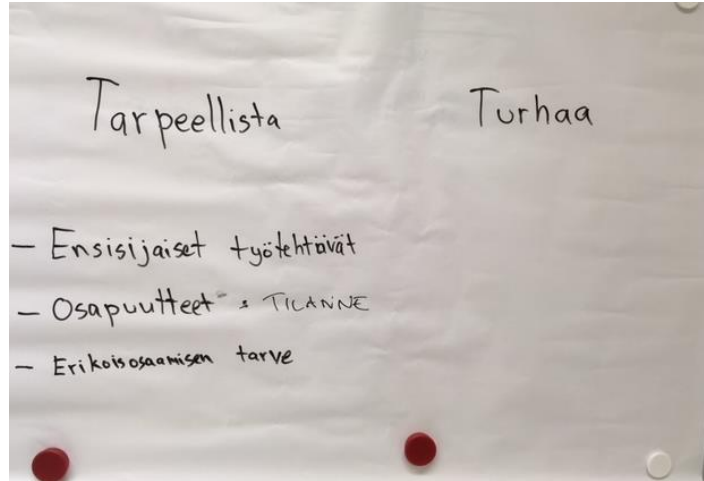 Tarpeellista
Turhaa
- Ensisijaiset työtehtävät
- Osapuutteet : TILANNE
- Erikoisosaamisen tarve